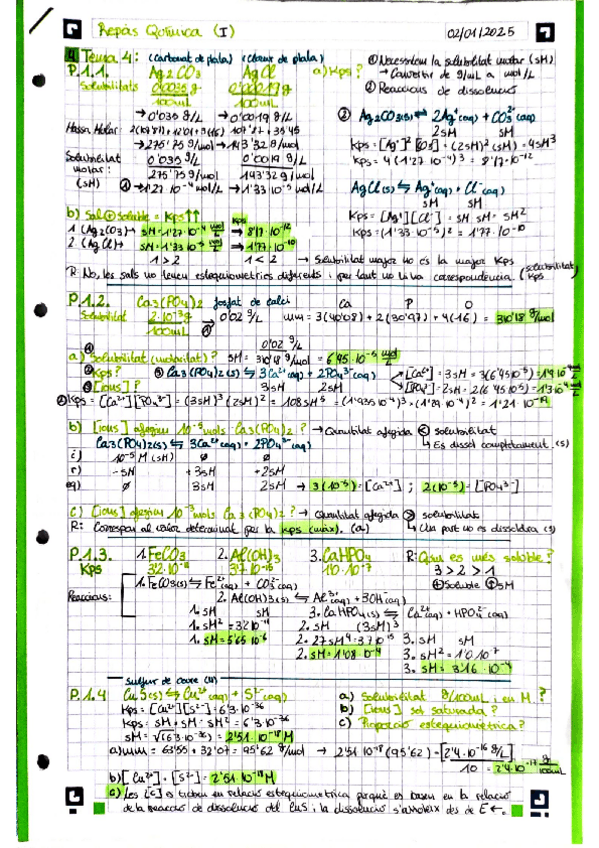 Repàs Química (I) 02/01/2025
4 Tema 4: (Carbonat de plata) (Clorur de plata) ① Necessitem la solubilitat molar (sM)
P.1.1. Ag2CO3 AgCl a) Kps? → Convertir de g/mL a mol/L
Solubilitats 0'0035 g 0'00019 g ② Reaccions de dissolució
100mL 100mL
→ 0'035 g/L → 0'0019 g/L ② Ag2CO3(s) ⇌ 2Ag+(aq) + CO3^2-(aq)
Massa Molar: 2(107'87)+12'01+3(16) 107'87+35'45 2sM sM
→ 275'75 g/mol → 143'32 g/mol Kps = [Ag+]^2 [CO3] = (2sM)^2 (sM) = 4sM^3
Solubilitat 0'035 g/L 0'0019 g/L Kps = 4(1'27·10^-4)^3 = 8'17·10^-12
molar: 275'75 g/mol 143'32 g/mol
(sM) ① → 1'27·10^-4 mol/L → 1'33·10^-5 mol/L AgCl(s) ⇌ Ag+(aq) + Cl-(aq)
sM sM
b) Sal ⊕ soluble = Kps↑↑ Kps Kps = [Ag+][Cl-] = sM·sM = sM^2
1 (Ag2CO3) → sM = 1'27·10^-4 mol/L → 8'17·10^-12 Kps = (1'33·10^-5)^2 = 1'77·10^-10
2. (AgCl) → sM = 1'33·10^-5 mol/L → 1'77·10^-10
1 > 2 1 < 2 → Solubilitat major no és la major Kps
R: No, les sals no tenen estequiometries diferents i per tant no hi ha correspondència. (solubilitat/Kps)
P.1.2. Ca3(PO4)2 fosfat de calci Ca P O
Solubilitat 2·10^-3 g → 0'02 g/L mm = 3(40'08) + 2(30'97) + 8(16) = 310'18 g/mol
100mL
0'02 g/L
a) Solubilitat (molaritat)? sM = 310'18 g/mol = 6'45·10^-5 mol/L
Kps? Ca3(PO4)2(s) ⇌ 3Ca2+(aq) + 2PO4^3-(aq) [Ca2+] = 3sM = 3(6'45·10^-5) = 1'9·10^-4
[ions]? 3sM 2sM [PO4^3-] = 2sM = 2(6'45·10^-5) = 1'3·10^-4
Kps = [Ca2+][PO4^3-] = (3sM)^3 (2sM)^2 = 108sM^5 = (1'935·10^-4)^3 · (1'29·10^-4)^2 = 1'21·10^-19
b) [ions] afegim 10^-5 mols Ca3(PO4)2? → Quantitat afegida < solubilitat
Ca3(PO4)2(s) ⇌ 3Ca2+(aq) + 2PO4^3-(aq) ↳ Es dissol completament (s)
i) 10^-5 M (sM) ∅ ∅
r) -sM +3sM +2sM
eq) ∅ 3sM 2sM → 3(10^-5) = [Ca2+] ; 2(10^-5) = [PO4^3-]
c) [ions] afegim 10^-3 mols Ca3(PO4)2? → Quantitat afegida > solubilitat
R: Correspon al valor determinat per la Kps (màx). (a) ↳ Una part no es dissoldrà (s)
P.1.3. 1. FeCO3 2. Al(OH)3 3. CaHPO4 R: Quin és més soluble?
Kps 3'2·10^-11 3'7·10^-15 1'0·10^-7 3 > 2 > 1
1. FeCO3(s) ⇌ Fe2+(aq) + CO3^2-(aq) ⊕ soluble ⊕ sM
Reaccions: 2. Al(OH)3(s) ⇌ Al3+(aq) + 3OH-(aq)
1. sM sM 3. CaHPO4(s) ⇌ Ca2+(aq) + HPO4^2-(aq)
1. sM^2 = 3'2·10^-11 2. sM (3sM)^3
1. sM = 5'65·10^-6 2. 27sM^4 = 3'7·10^-15 3. sM sM
2. sM = 1'08·10^-4 3. sM^2 = 1'0·10^-7
3. sM = 3'16·10^-4
Sulfur de coure (II)
P.1.4 CuS(s) ⇌ Cu2+(aq) + S2-(aq) a) Solubilitat g/100mL i en M?
Kps = [Cu2+][S2-] = 6'3·10^-36 b) [ions] sol saturada?
Kps = sM·sM = sM^2 = 6'3·10^-36 c) Proporció estequiomètrica?
sM = √(6'3·10^-36) = 2'51·10^-18 M
a) mm = 63'55 + 32'07 = 95'62 g/mol → 2'51·10^-18 (95'62) = [2'4·10^-16 g/L]
10 = 2'4·10^-17 g/100mL
b) [Cu2+] = [S2-] = 2'51·10^-18 M
c) Les [C] es troben en relació estequiomètrica perquè es basen en la relació
de la reacció de dissolució del CuS i la dissolució s'assoleix des de E←.